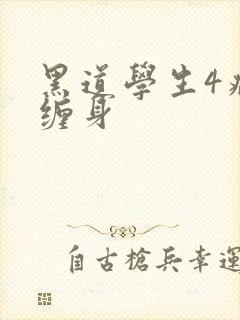 黑道學生4
缠身
自古槍兵幸運